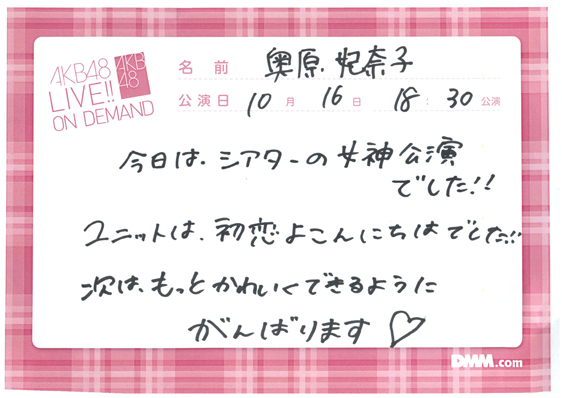 AKB48
LIVE!!
ON DEMAND
AKB
48
名前 奥原妃奈子
公演日 10月 16日 18:30公演
今日は、シアターの女神公演
でした!!
ユニットは、初恋よこんにちはでした!!
次は、もっとかわいくできるように
がんばります♡
DMM.com